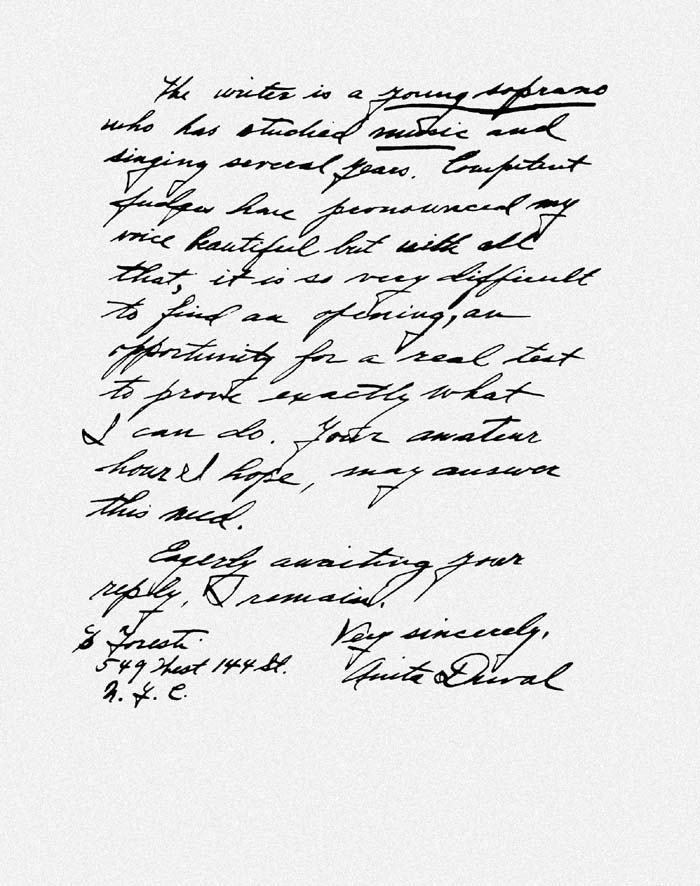 The writer is a young soprano
who has studied music and
singing several years. Competent
judges have pronounced my
voice beautiful but with all
that, it is so very difficult
to find an opening, an
opportunity for a real test
to prove exactly what
I can do. Your amateur
hour I hope, may answer
this need.
Eagerly awaiting your
reply, I remain.
Very sincerely,
Anita Duval
Foresti
549 West 144 St.
N. Y. C.